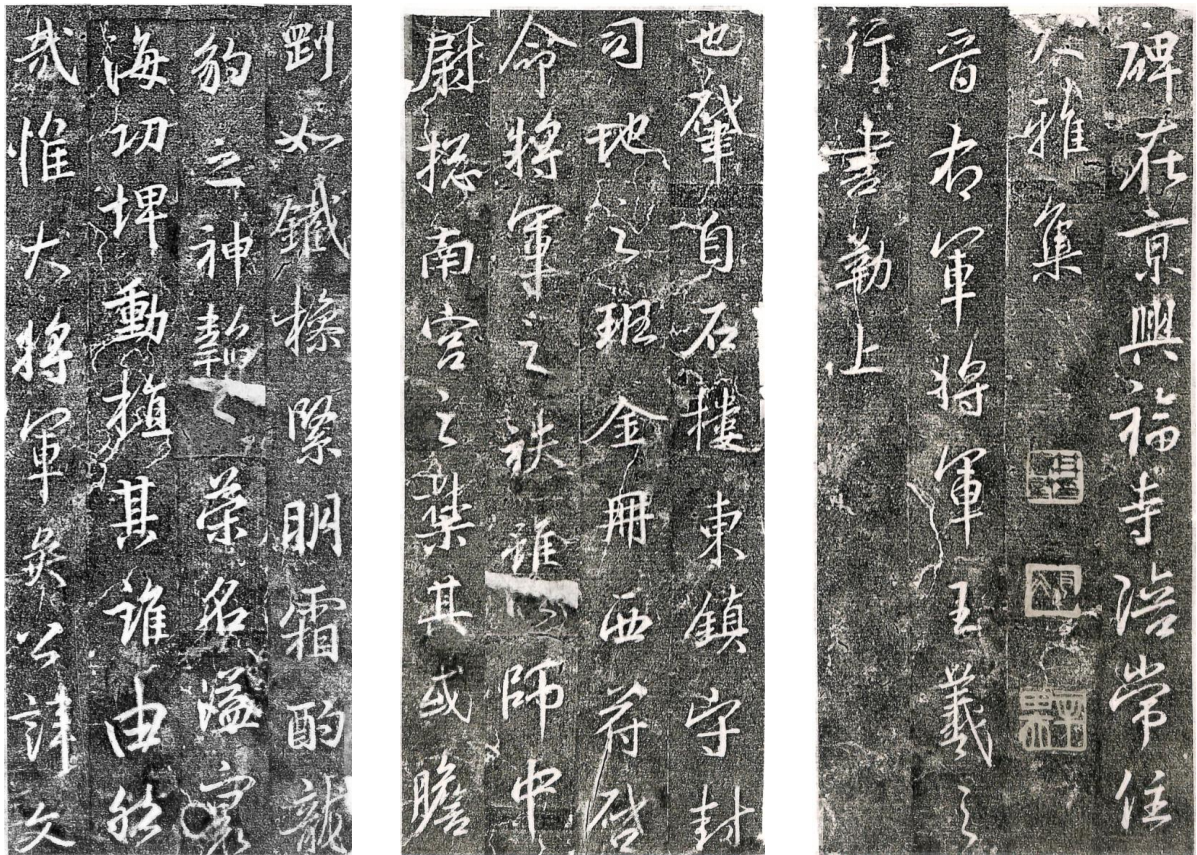 碑在京興福寺陪常住
大雅集
晋右軍將軍王羲之
行書勒上
也肇自石樓東鎮守封
司地之班金冊西符啓
命將軍之秩雖師中
尉揔南宮之禁其或膽
劉如鐵操緊明霜酌龍
豹之神韜榮名溢寰
海功埤動植其誰由然
哉惟大將軍矣公諱文